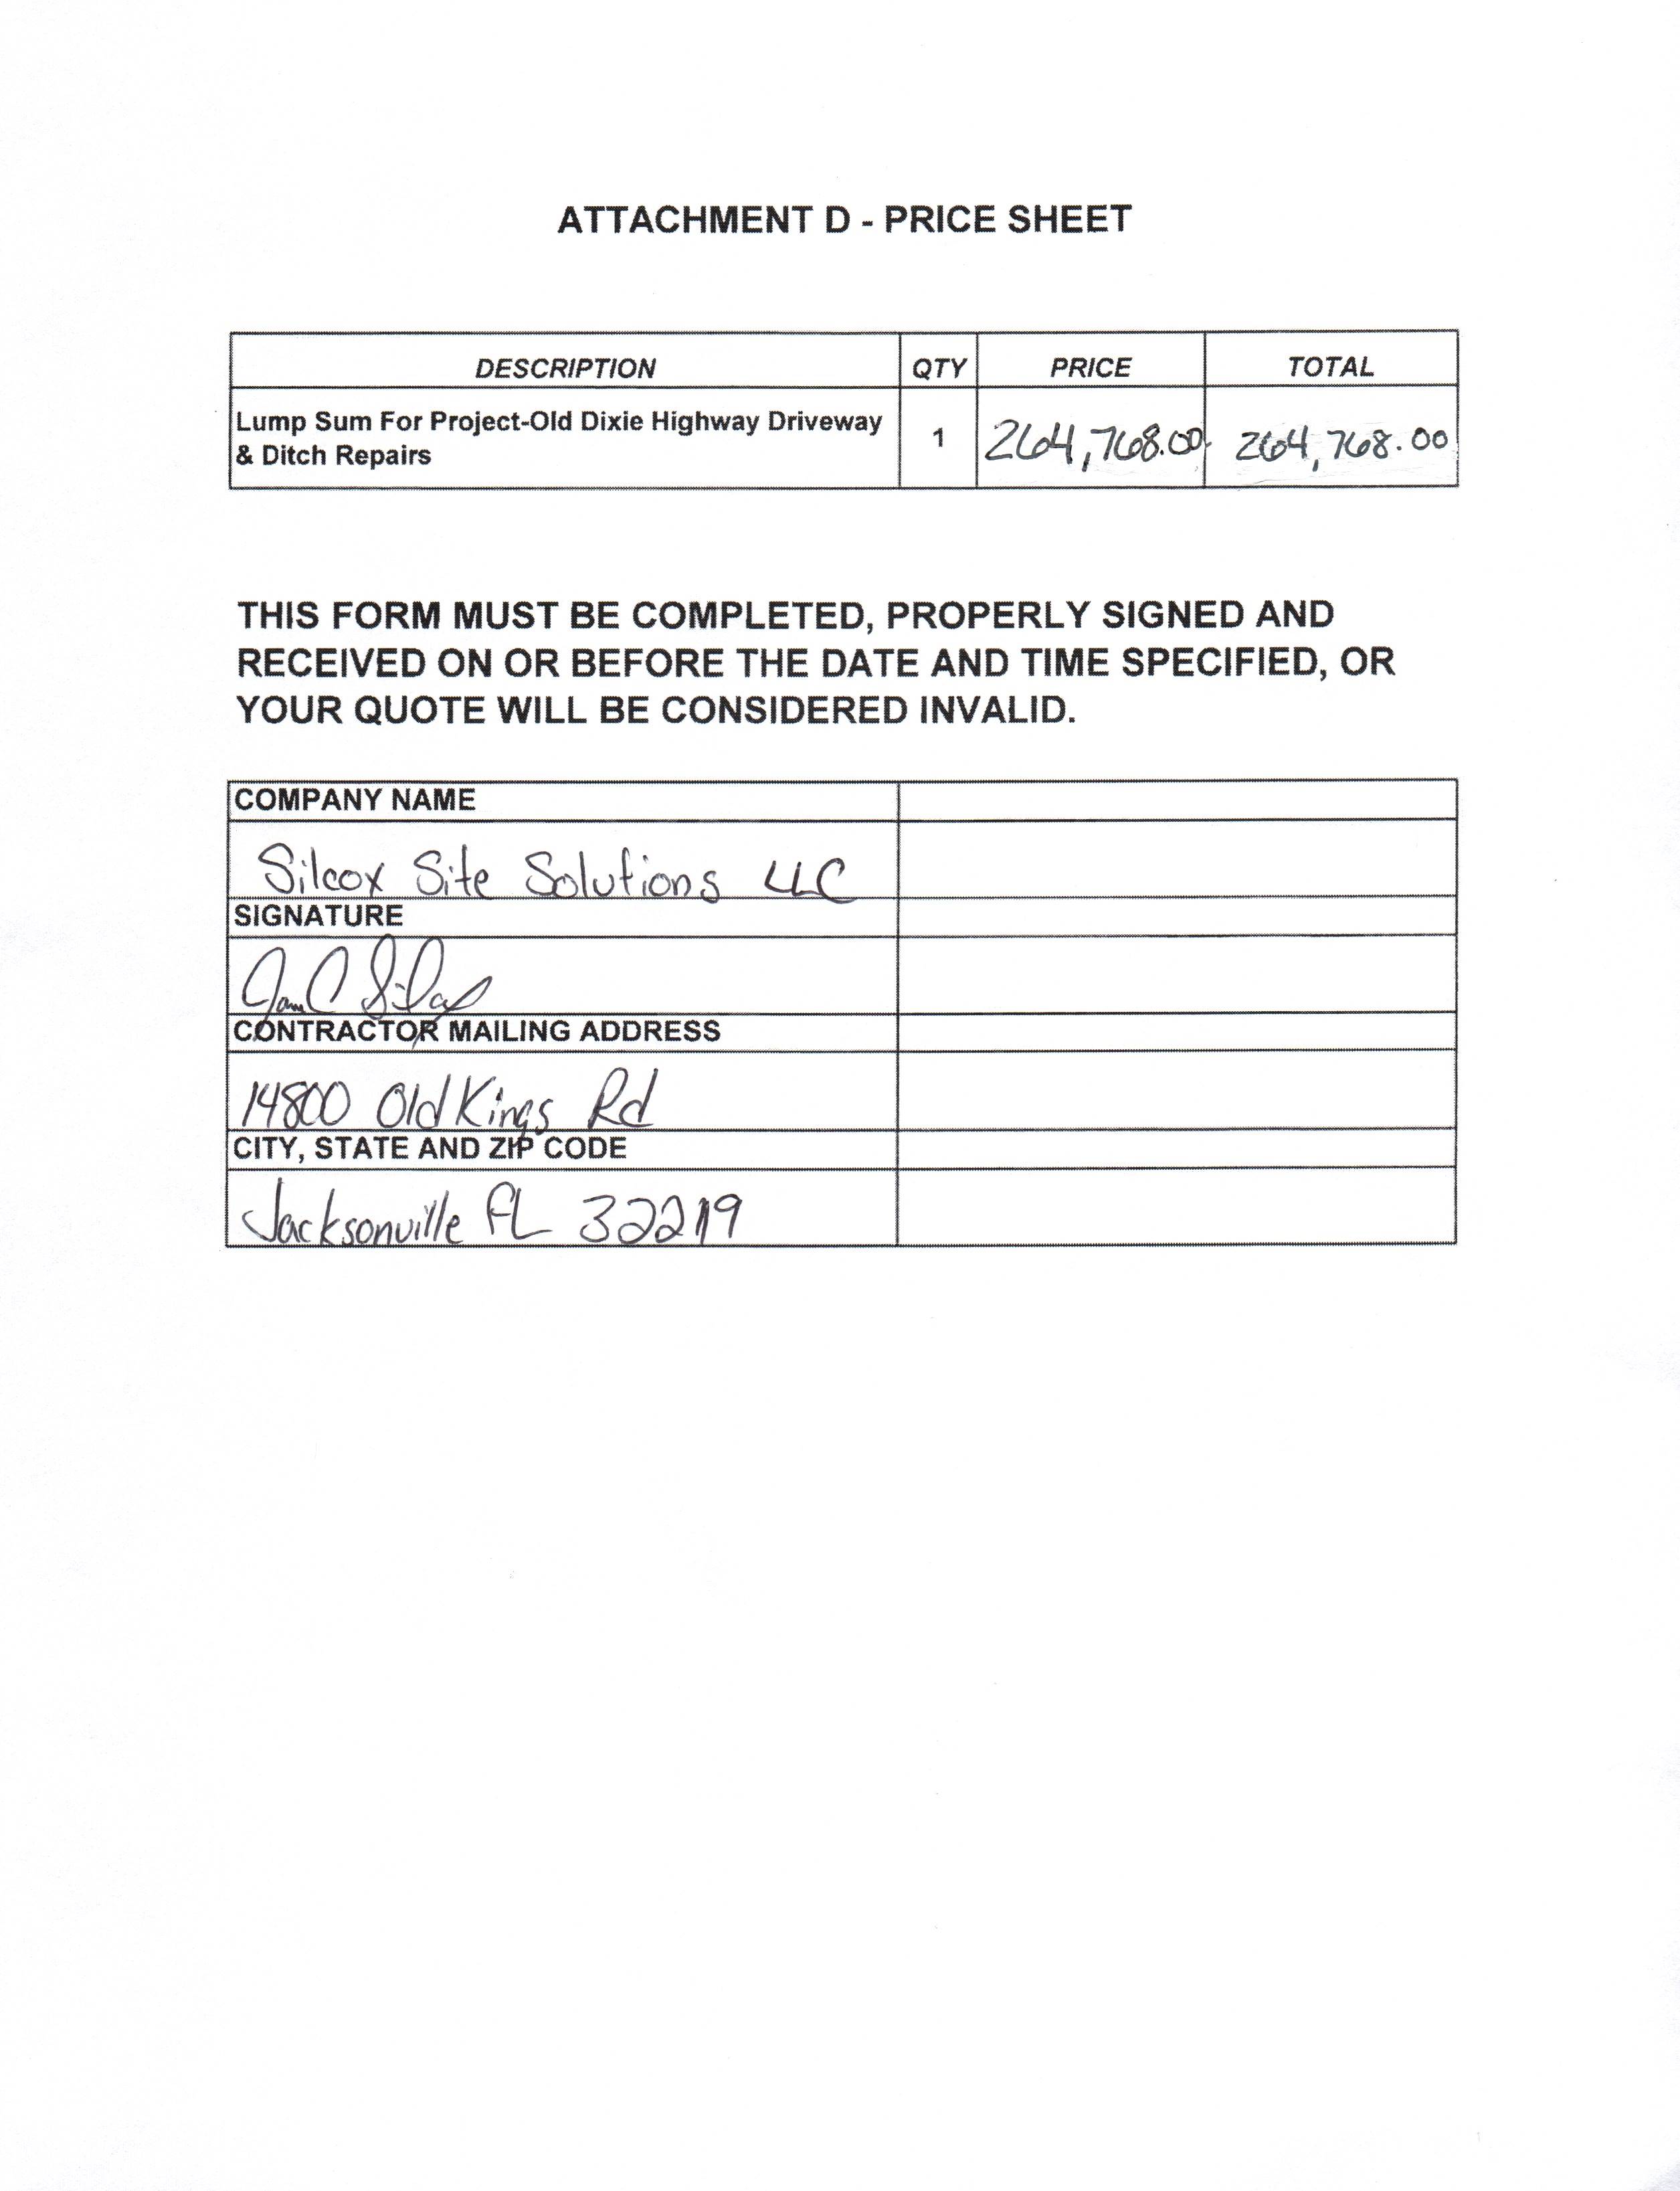 ATTACHMENT D - PRICE SHEET
DESCRIPTION QTY PRICE TOTAL
Lump Sum For Project-Old Dixie Highway Driveway
& Ditch Repairs 1 264,768.00 264,768.00
THIS FORM MUST BE COMPLETED, PROPERLY SIGNED AND
RECEIVED ON OR BEFORE THE DATE AND TIME SPECIFIED, OR
YOUR QUOTE WILL BE CONSIDERED INVALID.
COMPANY NAME
Silcox Site Solutions LLC
SIGNATURE
CONTRACTOR MAILING ADDRESS
14800 Old Kings Rd
CITY, STATE AND ZIP CODE
Jacksonville FL 32219